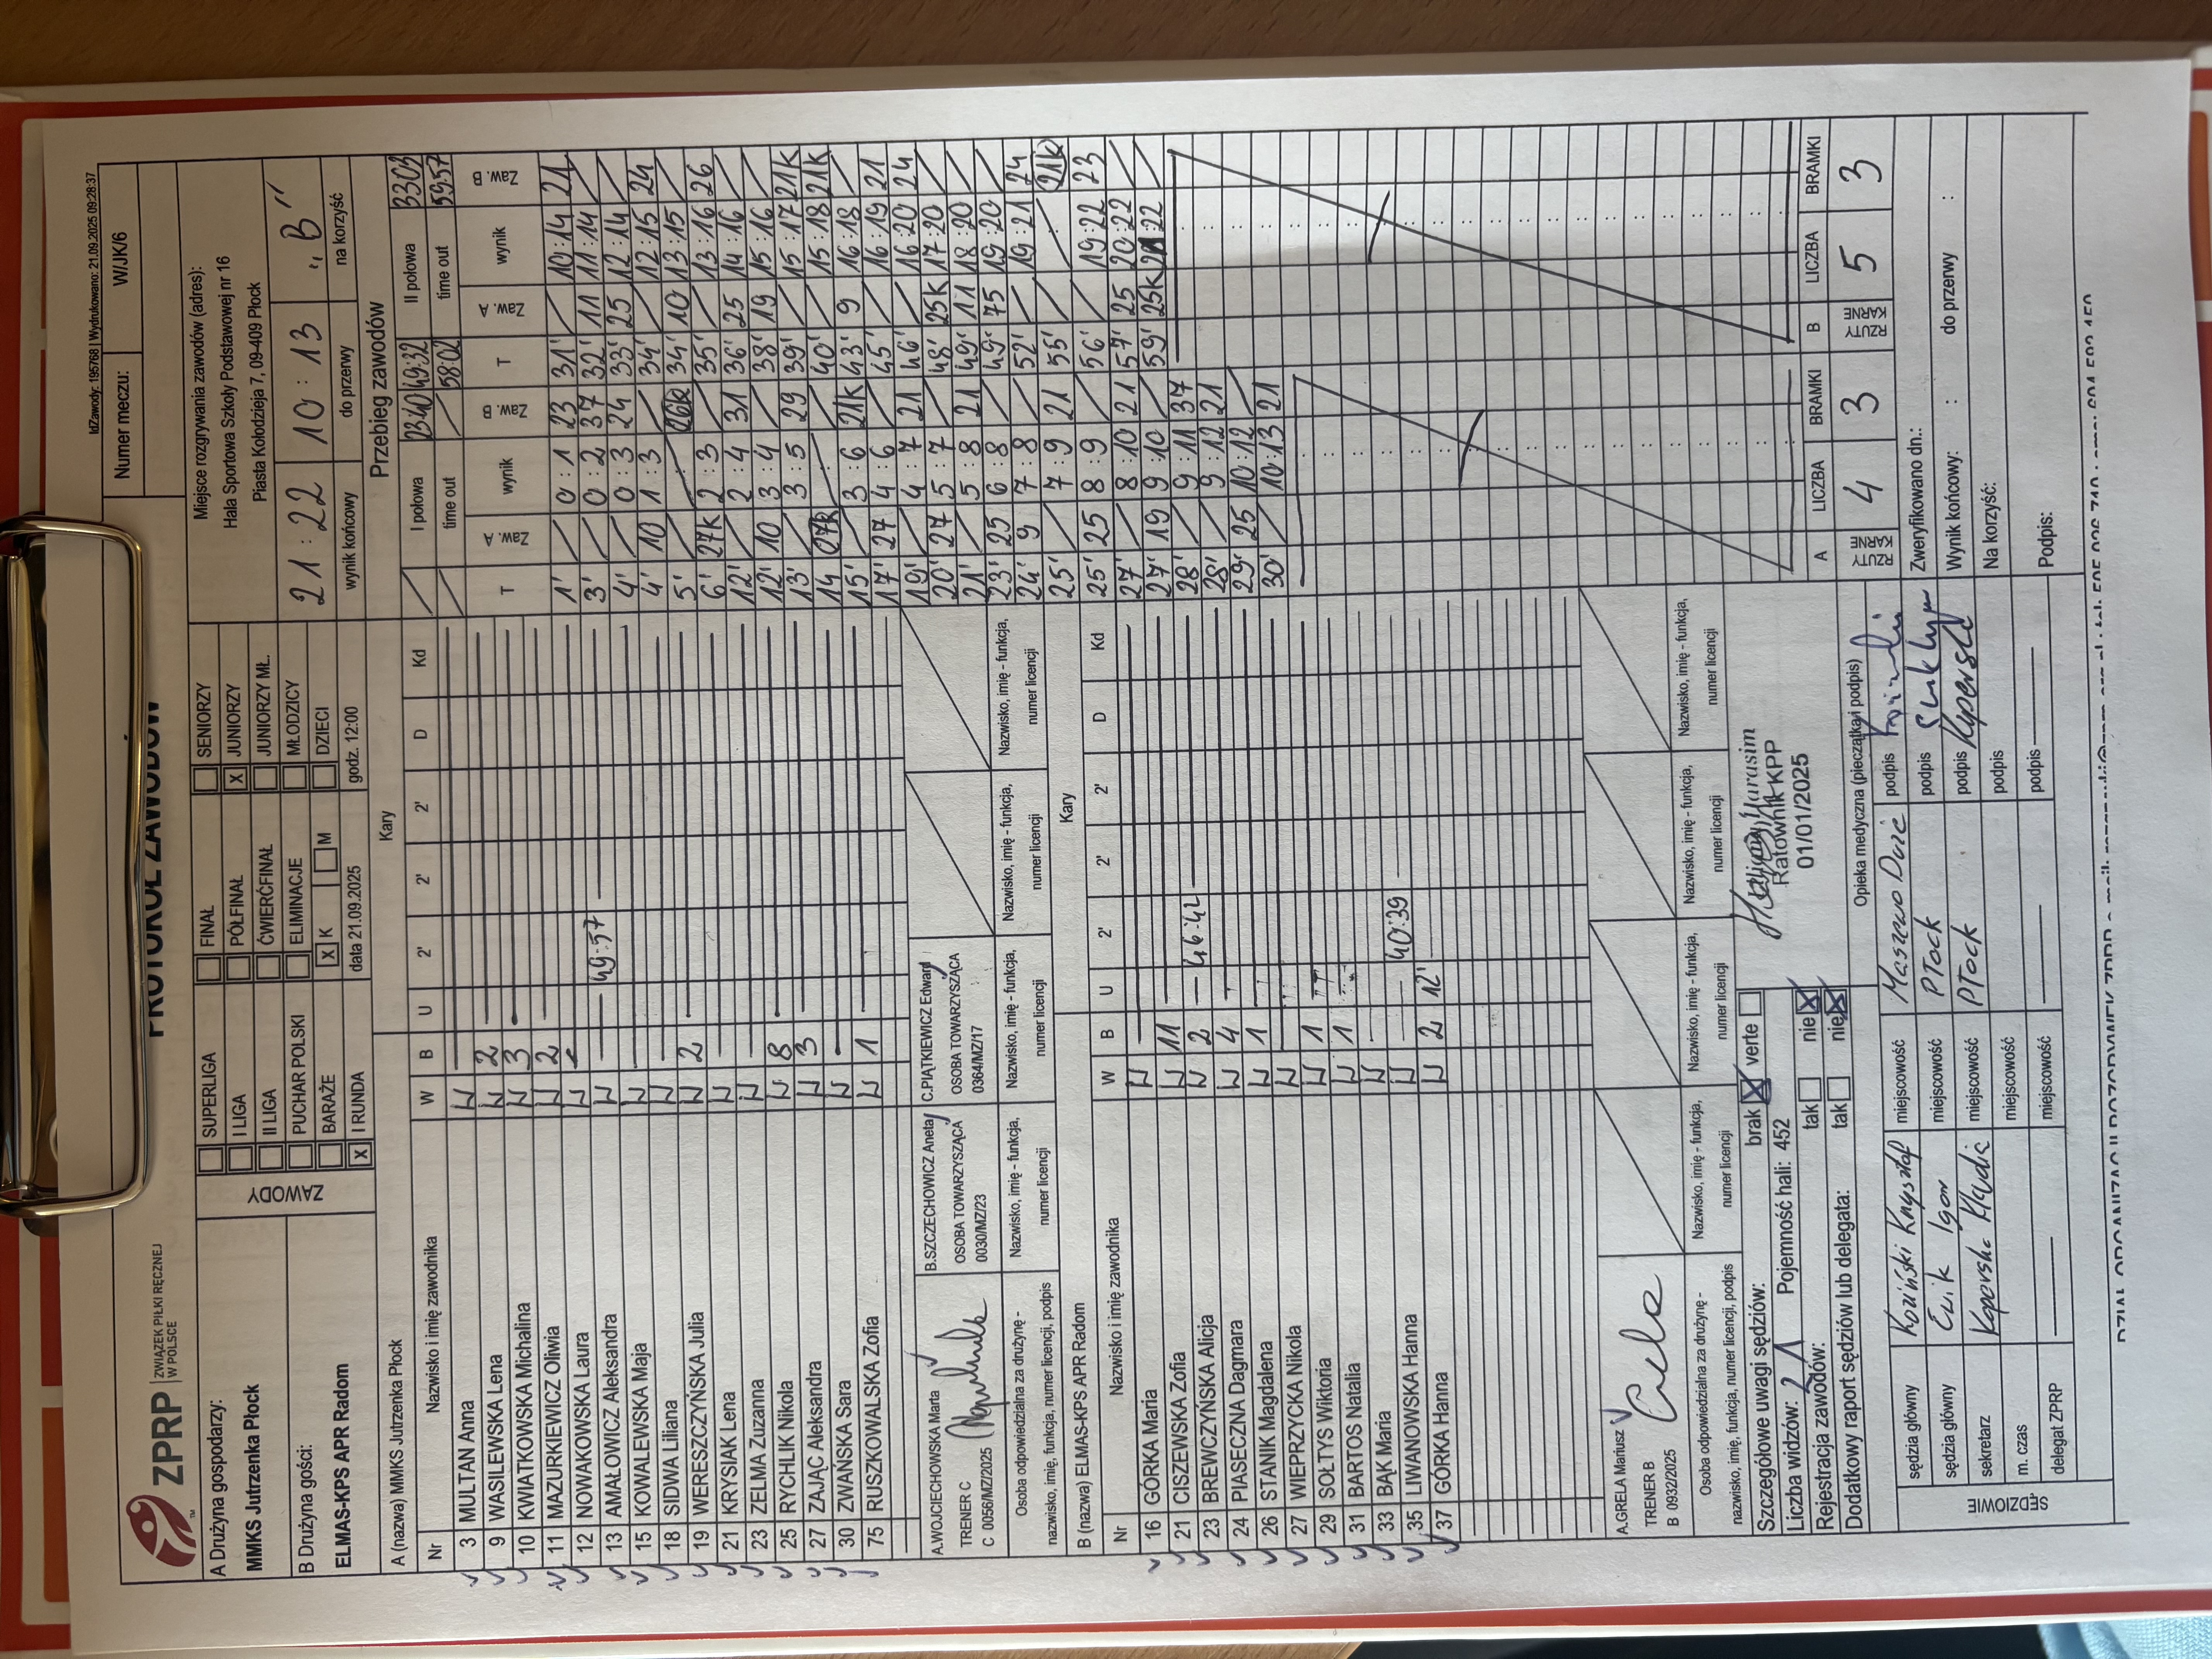 IdZawody: 195768 | Wydrukowano: 21.09.2025 09:28:37
ZPRP ZWIĄZEK PIŁKI RĘCZNEJ W POLSCE
PROTOKÓŁ ZAWODÓW
Numer meczu: W/JK/6
A Drużyna gospodarzy:
MMKS Jutrzenka Płock
B Drużyna gości:
ELMAS-KPS APR Radom
ZAWODY
SUPERLIGA FINAŁ SENIORZY
I LIGA PÓŁFINAŁ X JUNIORZY
II LIGA ĆWIERĆFINAŁ JUNIORZY MŁ.
PUCHAR POLSKI ELIMINACJE MŁODZICY
BARAŻE X K M DZIECI
X I RUNDA data 21.09.2025 godz. 12:00
Miejsce rozgrywania zawodów (adres):
Hala Sportowa Szkoły Podstawowej nr 16
Piasta Kołodzieja 7, 09-409 Płock
21 : 22 10 : 13 "B"
wynik końcowy do przerwy na korzyść
A (nazwa) MMKS Jutrzenka Płock Kary
Nr Nazwisko i imię zawodnika W B U 2' 2' 2' D Kd
3 MULTAN Anna W
9 WASILEWSKA Lena W 2
10 KWIATKOWSKA Michalina W 3
11 MAZURKIEWICZ Oliwia W 2
12 NOWAKOWSKA Laura W
13 AMAŁOWICZ Aleksandra W 49:57
15 KOWALEWSKA Maja W
18 SIDWA Liliana W
19 WERESZCZYŃSKA Julia W 2
21 KRYSIAK Lena W
23 ZELMA Zuzanna W
25 RYCHLIK Nikola W 8
27 ZAJĄC Aleksandra W 3
30 ZWAŃSKA Sara W
75 RUSZKOWALSKA Zofia W 1
A.WOJCIECHOWSKA Marta
TRENER C
C 0056/MZ/2025
B.SZCZECHOWICZ Aneta
OSOBA TOWARZYSZĄCA
0030/MZ/23
C.PIĄTKIEWICZ Edward
OSOBA TOWARZYSZĄCA
0364/MZ/17
Osoba odpowiedzialna za drużynę -
nazwisko, imię, funkcja, numer licencji, podpis
Nazwisko, imię - funkcja,
numer licencji
Nazwisko, imię - funkcja,
numer licencji
Nazwisko, imię - funkcja,
numer licencji
Nazwisko, imię - funkcja,
numer licencji
B (nazwa) ELMAS-KPS APR Radom Kary
Nr Nazwisko i imię zawodnika W B U 2' 2' 2' D Kd
16 GÓRKA Maria W
21 CISZEWSKA Zofia W 11
23 BREWCZYŃSKA Alicja W 2 46:42
24 PIASECZNA Dagmara W 4
26 STANIK Magdalena W 1
27 WIEPRZYCKA Nikola W
29 SOŁTYS Wiktoria W 1
31 BARTOS Natalia W 1
33 BĄK Maria W
35 LIWANOWSKA Hanna W 40:39
37 GÓRKA Hanna W 2 12'
A.GRELA Mariusz
TRENER B
B 0932/2025
Osoba odpowiedzialna za drużynę -
nazwisko, imię, funkcja, numer licencji, podpis
Nazwisko, imię - funkcja,
numer licencji
Nazwisko, imię - funkcja,
numer licencji
Nazwisko, imię - funkcja,
numer licencji
Nazwisko, imię - funkcja,
numer licencji
Przebieg zawodów
I połowa 23:40 49:32 II połowa 33:03
time out 58:02 time out 59:57
T Zaw. A wynik Zaw. B T Zaw. A wynik Zaw. B
1' 0:1 23 31' 10:14 21
3' 0:2 37 32' 11 11:14
4' 0:3 24 33' 25 12:14
4' 10 1:3 34' 12:15 24
5' 26k 34' 10 13:15
6' 27k 2:3 35' 13:16 26
12' 2:4 31 36' 25 14:16
12' 10 3:4 38' 19 15:16
13' 3:5 29 39' 15:17 21k
14 07k 40' 15:18 21k
15' 3:6 21k 43' 9 16:18
17' 27 4:6 45' 16:19 21
19' 4:7 21 46' 16:20 24
20' 27 5:7 48' 25k 17:20
21' 5:8 21 49' 11 18:20
23' 25 6:8 49' 75 19:20
24' 9 7:8 52' 19:21 24
25' 7:9 21 55' 21k
25' 25 8:9 56' 19:22 23
27' 8:10 21 57' 25 20:22
27' 19 9:10 59' 25k 21:22
28' 9:11 37
28' 9:12 21
29' 25 10:12
30' 10:13 21
A RZUTY KARNE LICZBA BRAMKI B RZUTY KARNE LICZBA BRAMKI
4 3 5 3
Szczegółowe uwagi sędziów: brak X verte
Liczba widzów: Pojemność hali: 452
Rejestracja zawodów: tak nie X
Dodatkowy raport sędziów lub delegata: tak nie X
Ratownik KPP
01/01/2025
Opieka medyczna (pieczątka i podpis)
SĘDZIOWIE
sędzia główny Koziński Krzysztof miejscowość podpis
sędzia główny Igor miejscowość Płock podpis
sekretarz miejscowość Płock podpis
m. czas miejscowość podpis
delegat ZPRP miejscowość podpis
Zweryfikowano dn.:
Wynik końcowy: : do przerwy :
Na korzyść:
Podpis: